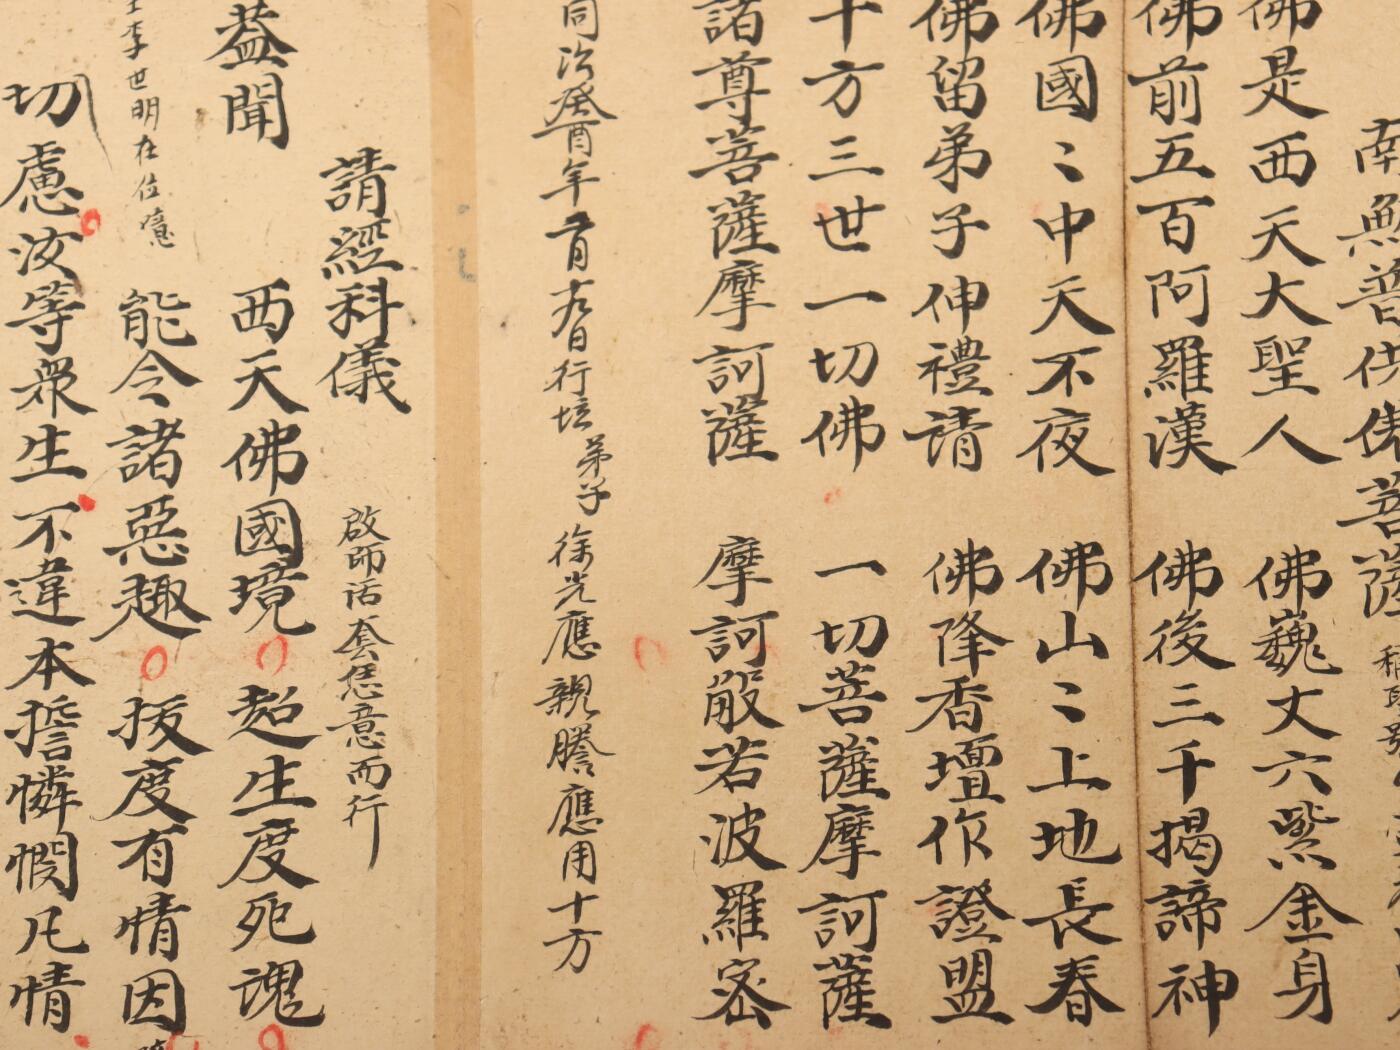 南無普供佛菩薩
佛是西天大聖人 佛巍丈六紫金身
佛前五百阿羅漢 佛後三千揭諦神
佛國〻中天不夜 佛山〻上地長春
佛留弟子伸禮請 佛降香壇作證盟
十方三世一切佛 一切菩薩摩訶薩
諸尊菩薩摩訶薩 摩訶般若波羅密
同治癸酉年二月十九日行壇弟子徐光應親謄應用十方
請經科儀 啟師話套恁意而行
蓋聞 西天佛國境 超生度死魂
李世明在位
能令諸惡趣 拔度有情因
切慮汝等衆生不違本誓憐憫凡情